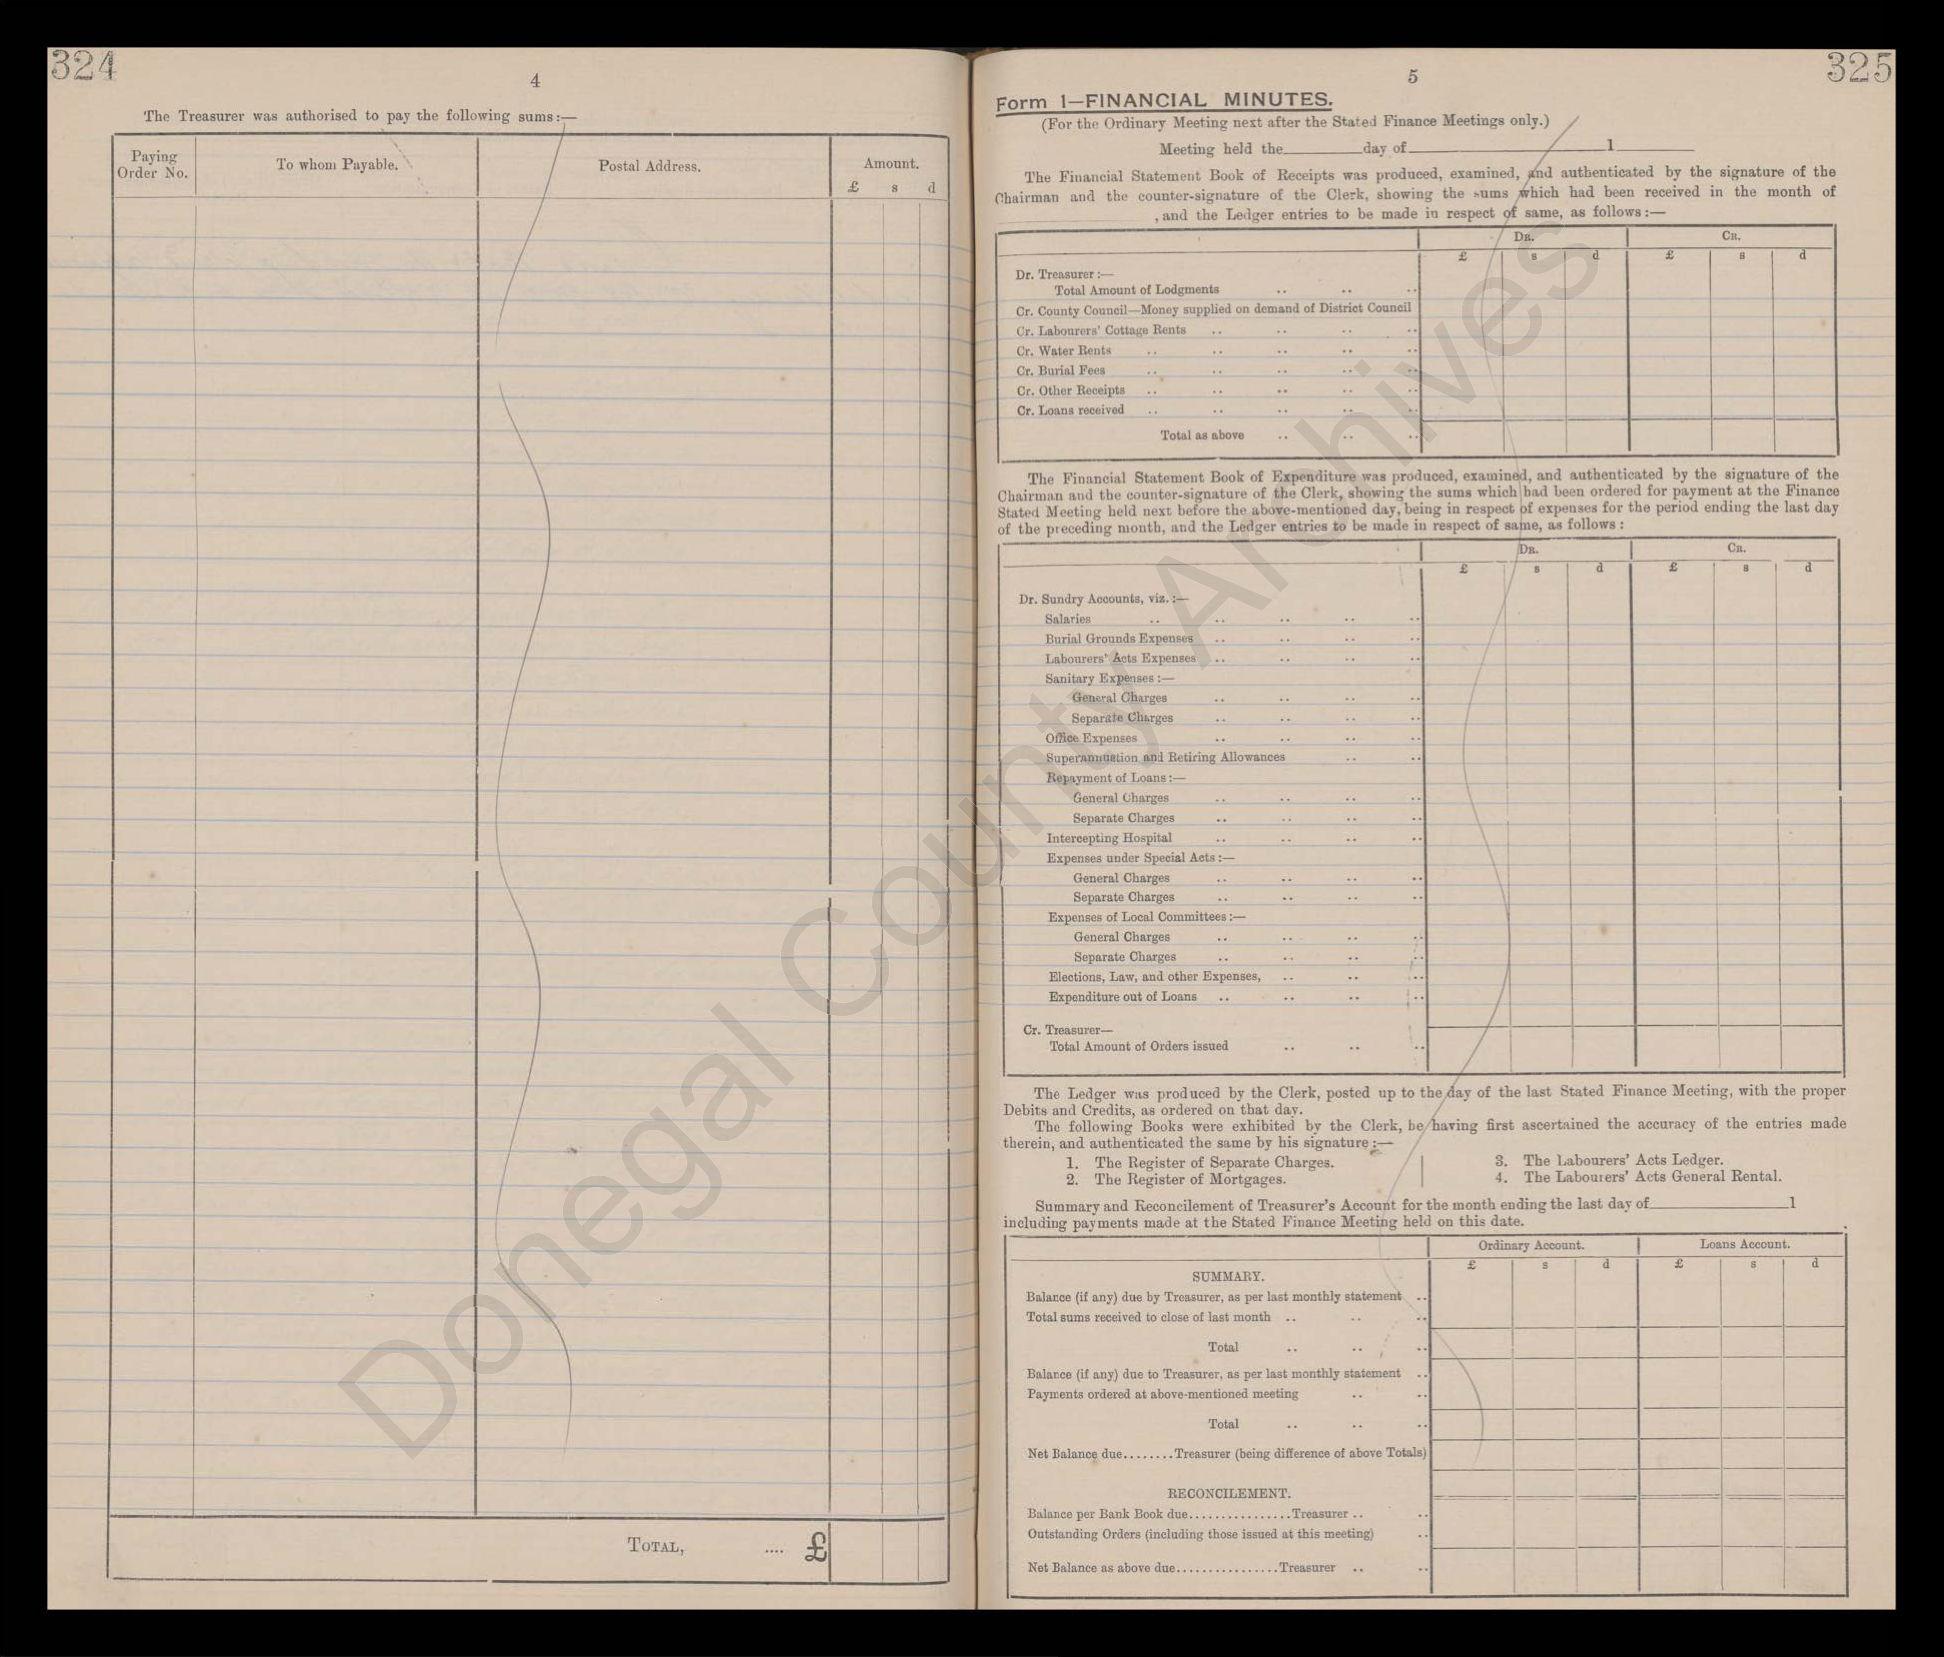 324
4
The Treasurer was authorised to pay the following sums:—
Paying Order No. To whom Payable. Postal Address. Amount.
£ s d
TOTAL, .... £
325
5
Form 1—FINANCIAL MINUTES.
(For the Ordinary Meeting next after the Stated Finance Meetings only.)
Meeting held the________day of____________________1________
The Financial Statement Book of Receipts was produced, examined, and authenticated by the signature of the
Chairman and the counter-signature of the Clerk, showing the sums which had been received in the month of
, and the Ledger entries to be made in respect of same, as follows:—
DR. CR.
£ s d £ s d
Dr. Treasurer:—
Total Amount of Lodgments .. .. ..
Cr. County Council—Money supplied on demand of District Council
Cr. Labourers' Cottage Rents .. .. .. ..
Cr. Water Rents .. .. .. .. ..
Cr. Burial Fees .. .. .. .. ..
Cr. Other Receipts .. .. .. .. ..
Cr. Loans received .. .. .. .. ..
Total as above .. .. ..
The Financial Statement Book of Expenditure was produced, examined, and authenticated by the signature of the
Chairman and the counter-signature of the Clerk, showing the sums which had been ordered for payment at the Finance
Stated Meeting held next before the above-mentioned day, being in respect of expenses for the period ending the last day
of the preceding month, and the Ledger entries to be made in respect of same, as follows:
DR. CR.
£ s d £ s d
Dr. Sundry Accounts, viz.:—
Salaries .. .. .. .. ..
Burial Grounds Expenses .. .. .. ..
Labourers' Acts Expenses .. .. .. ..
Sanitary Expenses:—
General Charges .. .. .. ..
Separate Charges .. .. .. ..
Office Expenses .. .. .. ..
Superannuation and Retiring Allowances .. ..
Repayment of Loans:—
General Charges .. .. .. ..
Separate Charges .. .. .. ..
Intercepting Hospital .. .. .. ..
Expenses under Special Acts:—
General Charges .. .. .. ..
Separate Charges .. .. .. ..
Expenses of Local Committees:—
General Charges .. .. .. ..
Separate Charges .. .. .. ..
Elections, Law, and other Expenses, .. .. ..
Expenditure out of Loans .. .. .. ..
Cr. Treasurer—
Total Amount of Orders issued .. .. ..
The Ledger was produced by the Clerk, posted up to the day of the last Stated Finance Meeting, with the proper
Debits and Credits, as ordered on that day.
The following Books were exhibited by the Clerk, he having first ascertained the accuracy of the entries made
therein, and authenticated the same by his signature:—
1. The Register of Separate Charges. 3. The Labourers' Acts Ledger.
2. The Register of Mortgages. 4. The Labourers' Acts General Rental.
Summary and Reconcilement of Treasurer's Account for the month ending the last day of____________________1
including payments made at the Stated Finance Meeting held on this date.
Ordinary Account. Loans Account.
£ s d £ s d
SUMMARY.
Balance (if any) due by Treasurer, as per last monthly statement ..
Total sums received to close of last month .. .. ..
Total .. .. ..
Balance (if any) due to Treasurer, as per last monthly statement ..
Payments ordered at above-mentioned meeting .. ..
Total .. .. ..
Net Balance due........Treasurer (being difference of above Totals)
RECONCILEMENT.
Balance per Bank Book due................Treasurer .. ..
Outstanding Orders (including those issued at this meeting) ..
Net Balance as above due................Treasurer .. ..
Donegal County Archives